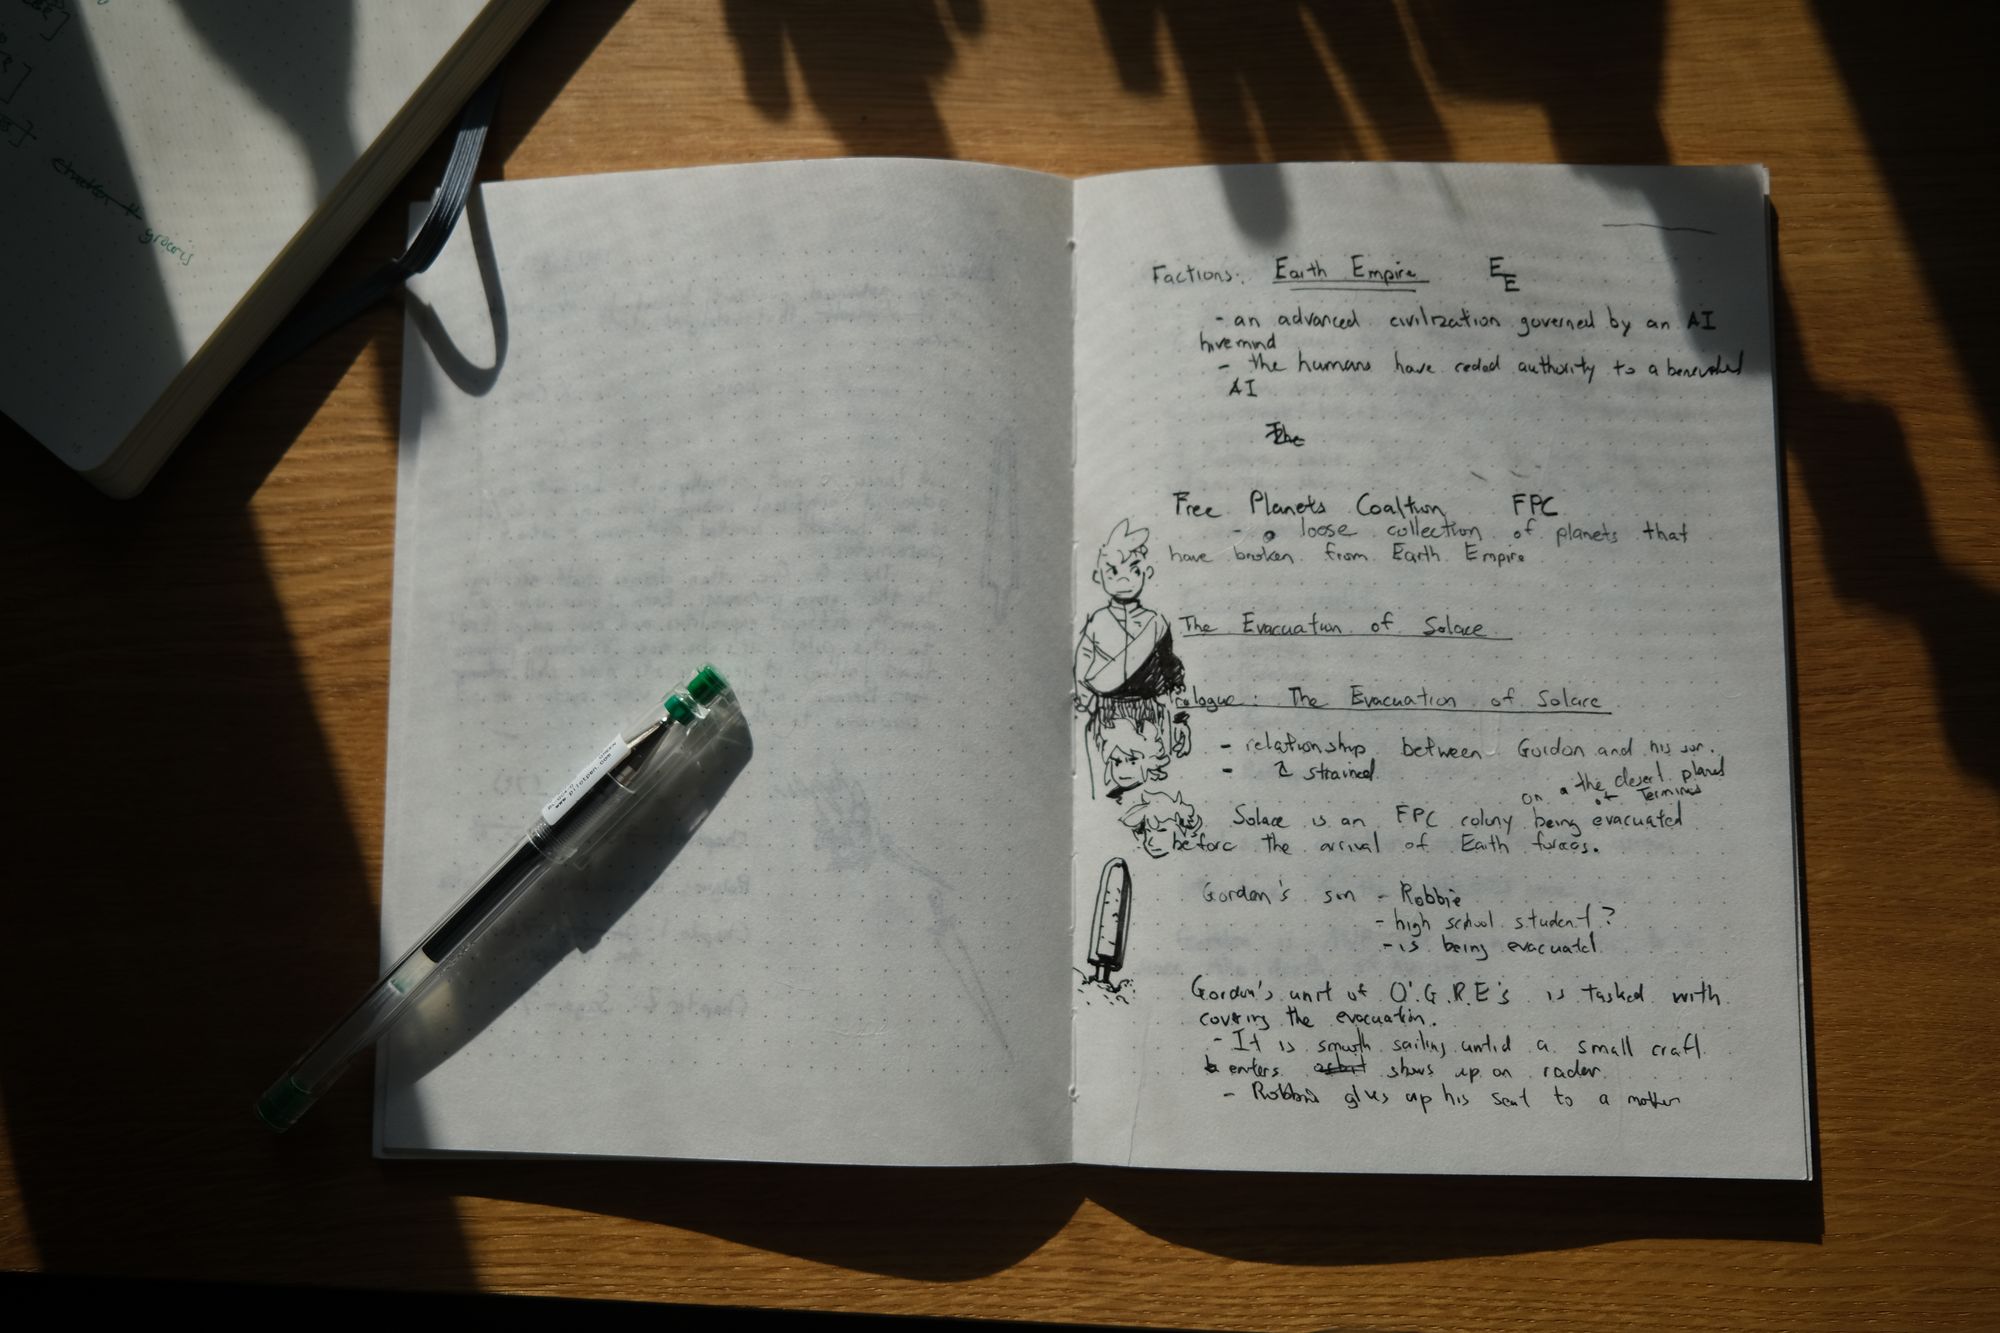 groceris
Factions: Earth Empire EE
- an advanced civilization governed by an AI
hivemind
- the humans have ceded authority to a benevolent
AI
The
Free Planets Coaltion FPC
- a loose collection of planets that
have broken from Earth Empire
The Evacuation of Solace
Prologue: The Evacuation of Solace
- relationship between Gordon and his son.
- strained
on a the desert planet
of Terminus
Solace is an FPC colony being evacuated
before the arrival of Earth forces.
Gordon's son - Robbie
- high school student?
- is being evacuated
Gordon's unit of O.G.R.E's is tasked with
covering the evacuation.
- It is smooth sailing until a small craft
enters orbit shows up on radar
- Robbie gives up his seat to a mother
www.pilotpen.com